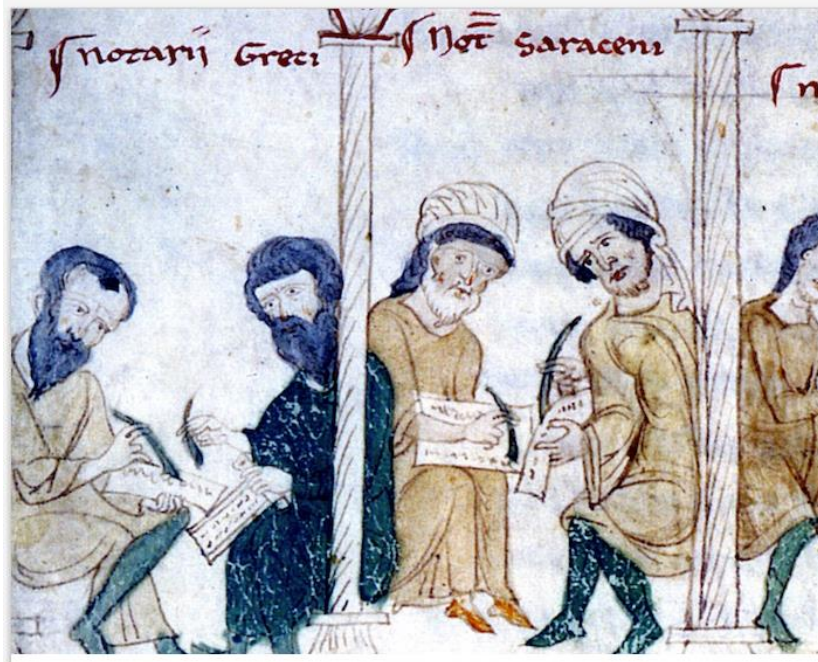 notarii Greci
Not Saraceni
n